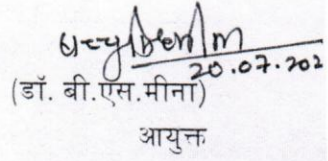 20.07.202
(डॉ. बी.एस.मीना)
आयुक्त